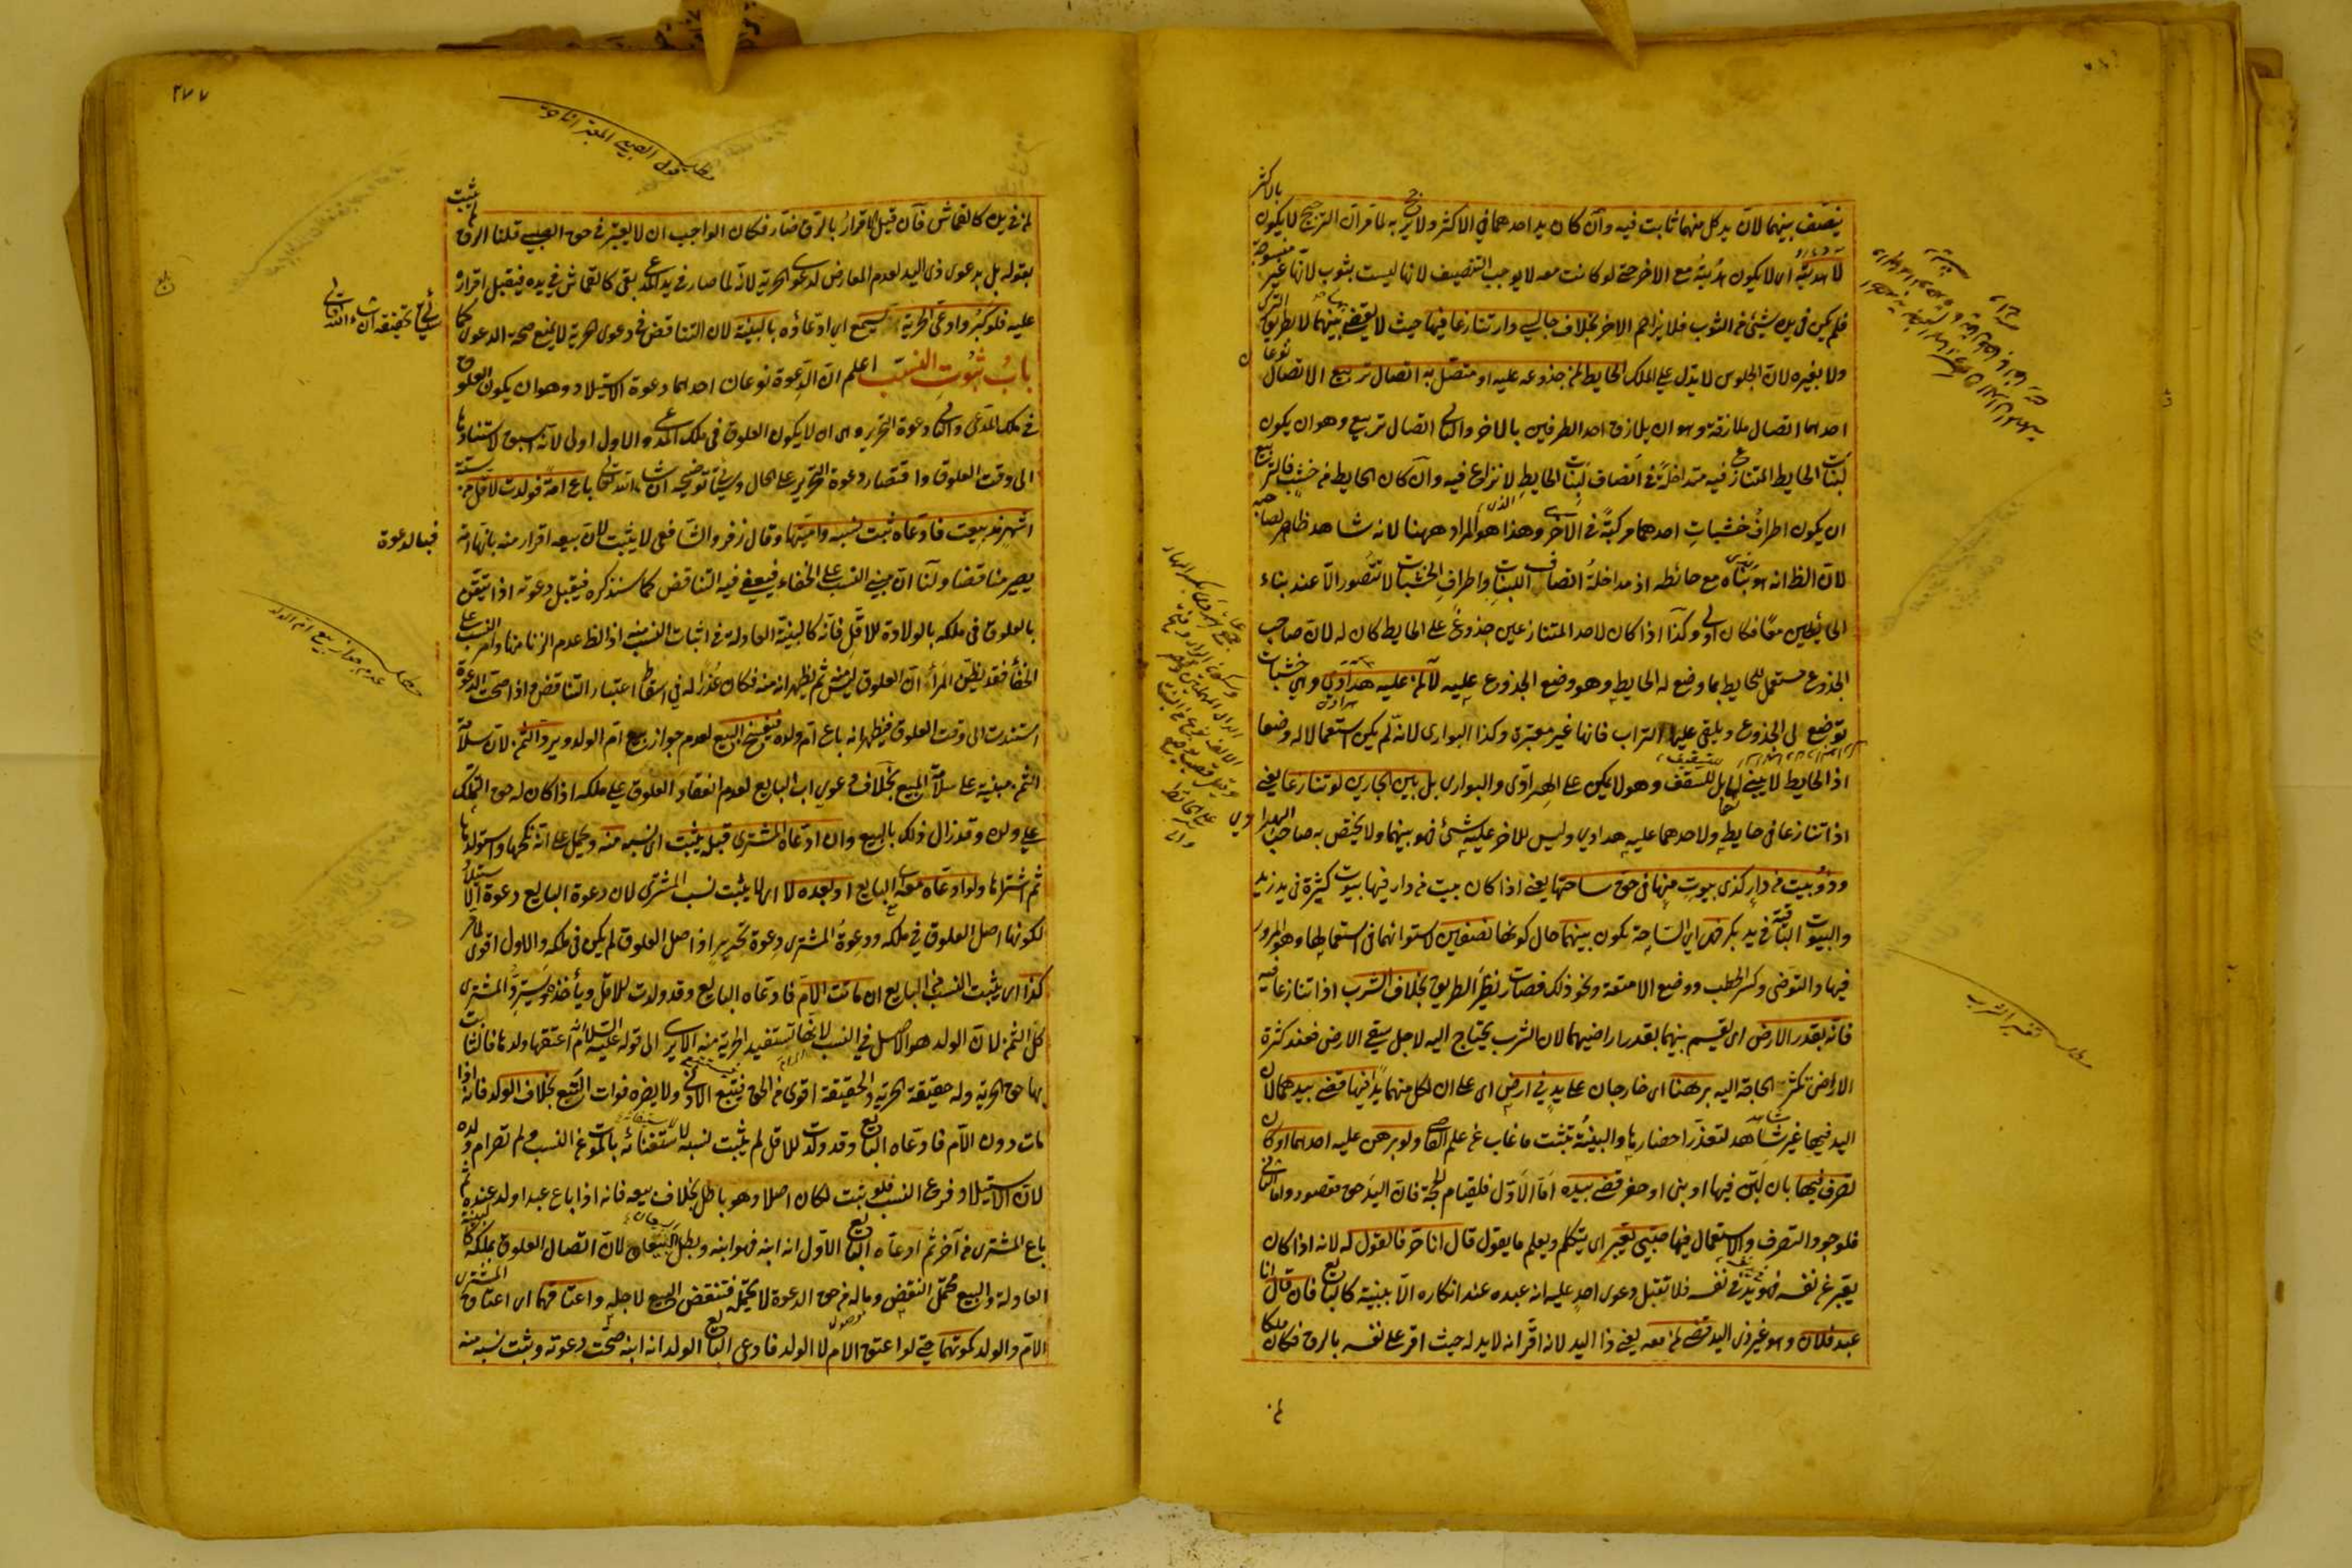 بالاكثر
ينصّف بينهما لانّ يد كل منهما ثابت فيه وان كان يد احدهما في الاكثر ولا يرجّح به لما مر انّ الترجيح لا يكون
لا هدبته اى لا يكون هدبته مع الاخر حتى لو كانت معه لا يوجب التنصيف لانها ليست بثوب لانها غير منسوجة
فلم يكن في يده شيئ من الثوب فلا يزاحم الاخر بخلاف جالسي دار تنازعا فيها حيث لا يقضى بينهما لا بطريق الترك
ولا بغيره لان الجلوس لا يدلّ على الملك الحايط لمن جذوعه عليه او متصل به اتصال تربيع الاتصال نوعان
احدهما اتصال ملازقة وهو ان يلازق احد الطرفين بالاخر والثاني اتصال تربيع وهو ان يكون
لبنات الحايط المتنازع فيه متداخلة في انصاف لبنات الحايط لا نزاع فيه وان كان الحايط من خشب فالتربيع
ان يكون اطراف خشبات احدهما مركبة في الاخرى وهذا هو المراد ههنا لانه شاهد ظاهر لصاحبه
لان الظ انه هو بناه مع حائطه اذ مداخلة انصاف اللبنات واطراف الخشبات لا تتصور الا عند بناء
الحائطين معًا فكان اولى وكذا اذا كان لاحد المتنازعين جذوع على الحايط كان له لان صاحب
الجذوع مستعمل للحايط بما وضع له الحايط وهو وضع الجذوع عليه لا لمن عليه هرادي وهي خشبات
توضع على الجذوع ويلقى عليها التراب فانها غير معتبرة وكذا البوارى لانه لم يكن استعمالا له وضعا
اذ الحايط لا يبنى لها بل للسقف وهو لا يمكن على الهرادى والبوارى بل بين الجارين لو تنازعا يعنى
اذا تنازعا في حايط ولاحدهما عليه هرادي وليس للاخر عليه شيئ فهو بينهما ولا يختص به صاحب الهرادي
وذو بيت من دار كذى بيوت منها في حق ساحتها يعنى اذا كان بيت من دار فيها بيوت كثيرة في يد زيد
والبيوت الباقية في يد بكر فهى اى الساحة تكون بينهما حال كونها نصفين لاستوائهما في استعمالها وهو المرور
فيها والتوضى وكسر الحطب ووضع الامتعة ونحو ذلك فصارت نظير الطريق بخلاف الشرب اذا تنازعا فيه
فانه بقدر الارض اى يقسم بينهما بقدر اراضيهما لان الشرب يحتاج اليه لاجل سقى الارض فعند كثرة
الاراضى تكثر الحاجة اليه برهنا اى خارجان على يد في ارض اى على ان لكل منهما يدا فيها قضى بيدهما لان
اليد فيها غير شاهد لتعذر احضارها والبينة تثبت ما غاب عن علم القاضى ولو برهن عليه احدهما او كان
تصرف فيها بان لبّن فيها او بنى او حفر قضى بيده اما الاول فلقيام الحجة فان اليد حق مقصود واما الثانى
فلوجود التصرف والاستعمال فيها صبيّ يعبر اى يتكلم ويعلم ما يقول قال انا حر فالقول له لانه اذا كان
يعبر عن نفسه فهو في يد نفسه فلا تقبل دعوى احد عليه انه عبده عند انكاره الا ببينة كالبالغ فان قال انا
عبد فلان وهو غير ذى اليد قضى لمن معه يعنى ذا اليد لانه اقر انه لا يد له حيث اقر على نفسه بالرق فكان ملكا
تفسير الشرب
٢٧٧
مطلب قول الصبى المعبر انا حر
لمن في يده كالقماش فان قيل الاقرار بالرق ضار فكان الواجب ان لا يعتبر في حق الصبى قلنا الرق لم يثبت
بقوله بل بدعوى ذى اليد لعدم المعارض لدعوى الحرية لانه لما صار في يد المدعى بقى كالقماش في يده فيقبل اقراره
عليه فلو كبر وادعى الحرية يسمع اى ادعاؤه بالبينة لان التناقض في دعوى الحرية لا يمنع صحة الدعوى كما
سيأتي تحقيقه ان شاء الله تعالى
باب ثبوت النسب اعلم ان الدعوة نوعان احدهما دعوة الاستيلاد وهو ان يكون العلوق
في ملك المدعى والثانى دعوة التحرير وهى ان لا يكون العلوق في ملك المدعى والاول اولى لانه اسبق لاستنادها
الى وقت العلوق واقتصار دعوة التحرير على الحال وسيأتى توضيحه ان شاء الله تعالى باع امة فولدت لاقل من ستة
اشهر مذ بيعت فادعاه ثبت نسبه واميتها وقال زفر والشافعى لا يثبت لان بيعه اقرار منه بانها امة
فبالدعوة
يصير مناقضا ولنا ان مبنى النسب على الخفاء فيعفى فيه التناقض كما سنذكره فيقبل دعوته اذا تيقن
بالعلوق في ملكه بالولادة للاقل فانه كالبينة العادلة في اثبات النسب منه اذ الظ عدم الزنا منها وامر النسب على
الخفاء فقد يظن المرأ ان العلوق ليس منه ثم يظهر انه منه فكان عذرا له في اسقاط اعتبار التناقض واذا صحت الدعوة
مطلب عدم جواز بيع ام الولد
استندت الى وقت العلوق فيظهر انه باع ام ولده فيفسخ البيع لعدم جواز بيع ام الولد ويرد الثمن لان سلامة
الثمن مبنية على سلامة المبيع بخلاف دعوى اب البايع لعدم انعقاد العلوق على ملكه اذا كان له حق التملك
على ولده وقد زال ذلك بالبيع وان ادعاه المشترى قبله يثبت اى نسبه منه ويحمل على انه نكحها واستولدها
ثم اشتراها ولو ادعاه معه اى البايع او بعده لا اى لا يثبت نسب المشترى لان دعوة البايع دعوة استيلاد
لكونها اصل العلوق في ملكه ودعوة المشترى دعوة تحرير اذ اصل العلوق لم يكن في ملكه والاول اقوى لما مر
كذا اى يثبت النسب من البايع ان ماتت الام فادعاه البايع وقد ولدت للاقل ويأخذه ويسترد المشترى
كل الثمن لان الولد هو الاصل في النسب لانها تستفيد الحرية منه الا يرى الى قوله عليه السلام اعتقها ولدها فالثابت
بها حق الحرية وله حقيقة الحرية والحقيقة اقوى من الحق فيتبع الادنى ولا يضره فوات التبع بخلاف الولد فانه اذا
مات دون الام فادعاه البايع وقد ولدت للاقل لم يثبت نسبه لاستغنائه بالموت عن النسب ولم تصر ام ولده
لان الاستيلاد فرع النسب فلو ثبت لكان اصلا وهو باطل بخلاف بيعه فانه اذا باع عبدا ولد عنده ثم
باع المشترى من آخر ثم ادعاه البايع الاول انه ابنه فهو ابنه وبطل البيعان لان اتصال العلوق بملكه كالبينة
العادلة والبيع محتمل النقض وماله من حق الدعوة لا يحتمله فتنقض البيع لاجله واعتاقهما اى اعتاق المشترى
الام والولد كموتهما حتى لو اعتق الام لا الولد فادعى البايع الولد انه ابنه صحت دعوته وثبت نسبه منه